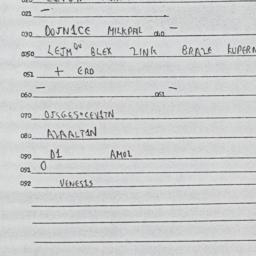 021 —
030 DOJN1CE MILKPAL 040 —
050 LEJM BLEX ZING BRAZE KUPERN
051 + ERD
060 — 061 —
070 OJSGES•CEV17N
080 AVAALT1N
090 D1 AMOL
091 O
092 VENES1S